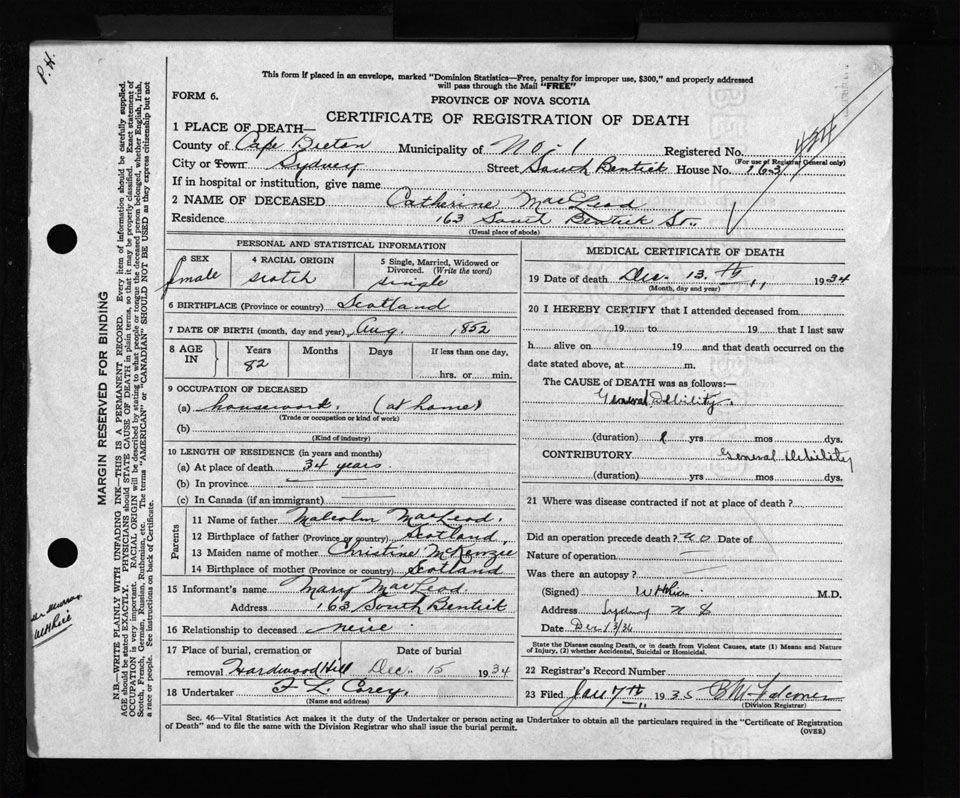 P. H.
This form if placed in an envelope, marked "Dominion Statistics—Free, penalty for improper use, $300," and properly addressed
will pass through the Mail "FREE"
FORM 6.
PROVINCE OF NOVA SCOTIA
CERTIFICATE OF REGISTRATION OF DEATH
1 PLACE OF DEATH—
County of Cape Breton Municipality of No-1 Registered No. 434
(For use of Registrar General only)
City or Town Sydney Street South Bentick House No. 163
If in hospital or institution, give name
2 NAME OF DECEASED Catherine MacLeod
Residence 163 South Bentick St.
(Usual place of abode)
PERSONAL AND STATISTICAL INFORMATION
3 SEX female
4 RACIAL ORIGIN scotch
5 Single, Married, Widowed or Divorced. (Write the word) single
6 BIRTHPLACE (Province or country) Scotland
7 DATE OF BIRTH (month, day and year) Aug. 1852
8 AGE IN Years 82 Months Days If less than one day,
hrs. or min.
9 OCCUPATION OF DECEASED
(a) housework. (at home)
(Trade or occupation or kind of work)
(b)
(Kind of industry)
10 LENGTH OF RESIDENCE (in years and months)
(a) At place of death 34 years.
(b) In province
(c) In Canada (if an immigrant)
Parents
11 Name of father Malcolm MacLeod.
12 Birthplace of father (Province or country) Scotland
13 Maiden name of mother Christine McKenzie
14 Birthplace of mother (Province or country) Scotland
15 Informant's name Mary MacLeod.
Address 163 South Bentick
16 Relationship to deceased neice
17 Place of burial, cremation or Date of burial
removal Hardwood Hill Dec. 15 1934
18 Undertaker F L. Corey.
(Name and address)
MEDICAL CERTIFICATE OF DEATH
19 Date of death Dec. 13. th 1934
(Month, day and year)
20 I HEREBY CERTIFY that I attended deceased from
19 to 19 that I last saw
h alive on 19 and that death occurred on the
date stated above, at m.
The CAUSE of DEATH was as follows:—
General Debility.
(duration) yrs mos dys.
CONTRIBUTORY General Debility
(duration) yrs mos dys.
21 Where was disease contracted if not at place of death?
Did an operation precede death? no Date of
Nature of operation
Was there an autopsy?
(Signed) M.D.
Address Sydney N S
Date Dec 13/34
State the Disease causing Death, or in death from Violent Causes, state (1) Means and Nature
of Injury, (2) whether Accidental, Suicidal or Homicidal.
22 Registrar's Record Number
23 Filed Jan 7th 1935 B M Falconer
(Division Registrar)
Sec. 46—Vital Statistics Act makes it the duty of the Undertaker or person acting as Undertaker to obtain all the particulars required in the "Certificate of Registration
of Death" and to file the same with the Division Registrar who shall issue the burial permit.
(OVER)
MARGIN RESERVED FOR BINDING
N.B.—WRITE PLAINLY WITH UNFADING INK—THIS IS A PERMANENT RECORD. Every item of information should be carefully supplied.
AGE should be stated EXACTLY. PHYSICIANS should STATE CAUSE OF DEATH in plain terms, so that it may be properly classified. Exact statement of
OCCUPATION is very important. RACIAL ORIGIN will be described by stating to what people or tongue the deceased person belonged, whether English, Irish,
Scotch, French, German, Russian, Ruthenian, etc. The terms "AMERICAN" or "CANADIAN" SHOULD NOT BE USED as they express citizenship but not
a race or people. See instructions on back of Certificate.